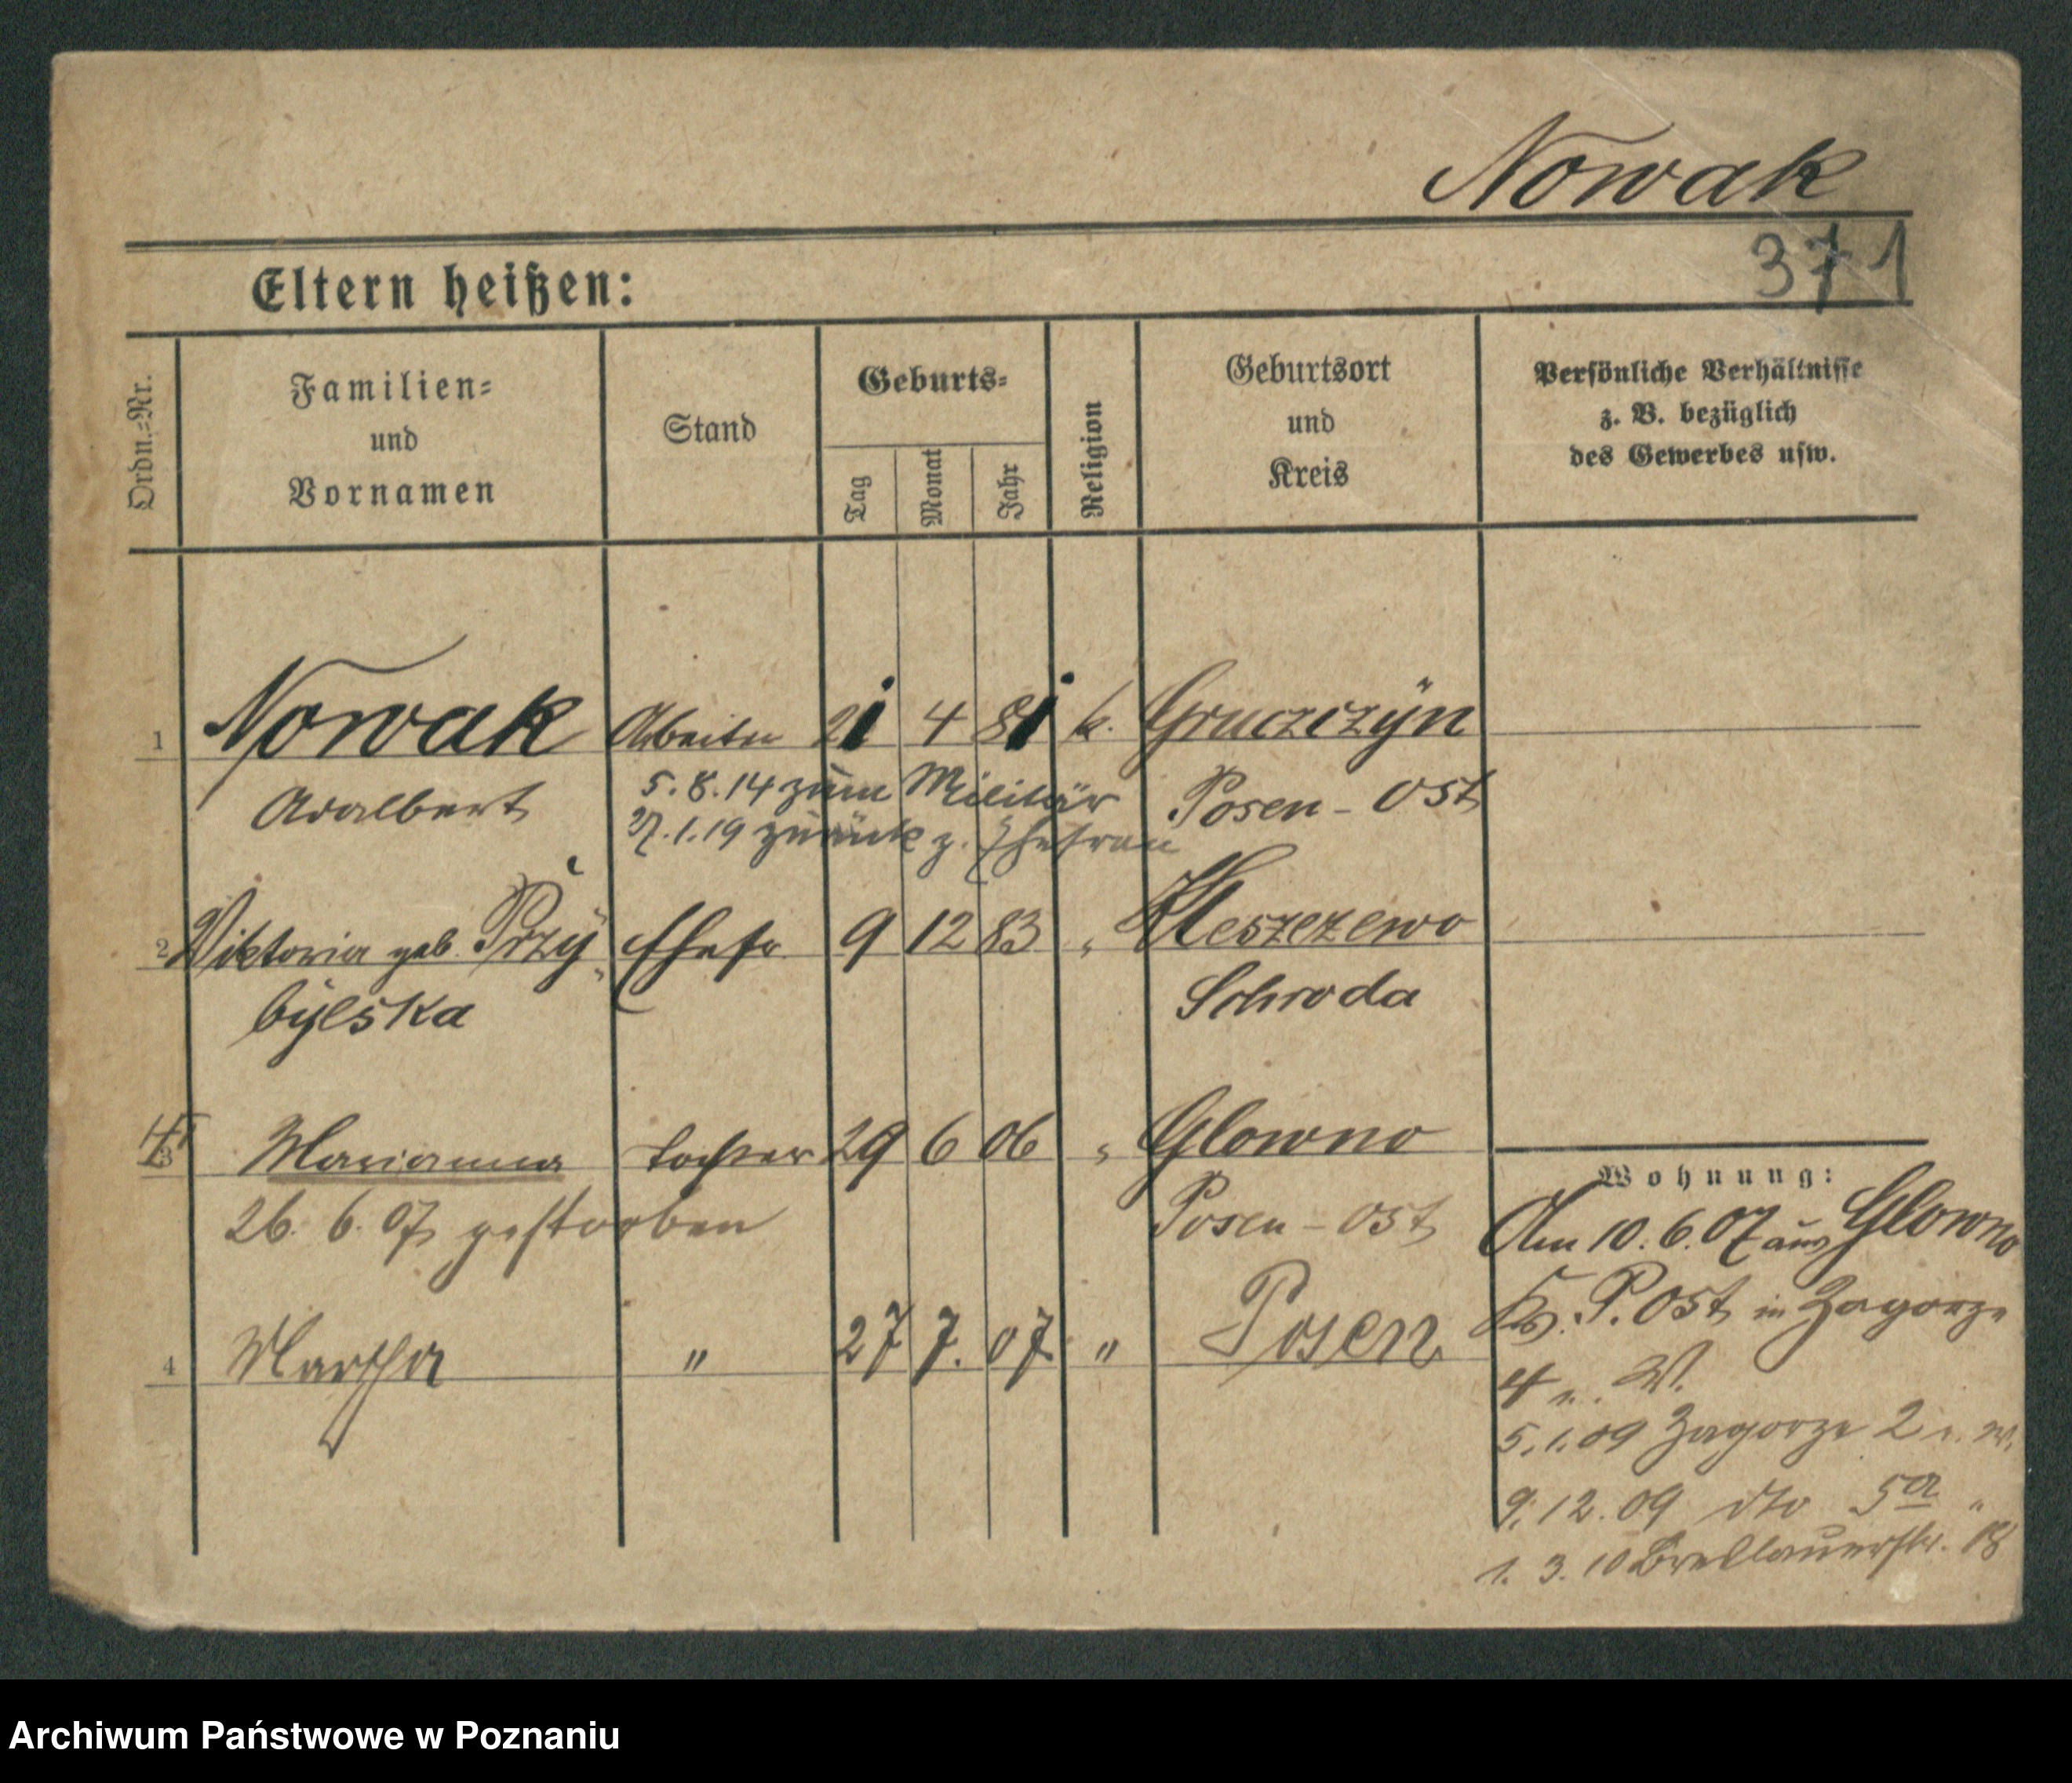 Nowak
371
Eltern heißen:
Ordn.-Nr.
Familien-
und
Vornamen
Stand
Geburts-
Tag
Monat
Jahr
Religion
Geburtsort
und
Kreis
Persönliche Verhältnisse
z. B. bezüglich
des Gewerbes usw.
1 Nowak Arbeiter 21 4 81 k. Gruczczÿn
Adalbert
5.8.14 zum Militär
27.1.19 zurück z. Ehefrau
Posen-Ost
2 Viktoria geb. Przÿ- Ehefr 9 12 83 " Kleszezewo
bÿlska
Schroda
3 Marianna Tochter 29 6 06 " Glowno
26. 6. 07 gestorben
Posen-Ost
4 Martha " 27 7. 07 " Posen
Wohnung:
Am 10.6.07 aus Glowno
Kr. P. Ost in Zagorze
4 W.
5.1.09 Zagorze 2
9.12.09 dto 5a "
1.3.10 18
Archiwum Państwowe w Poznaniu